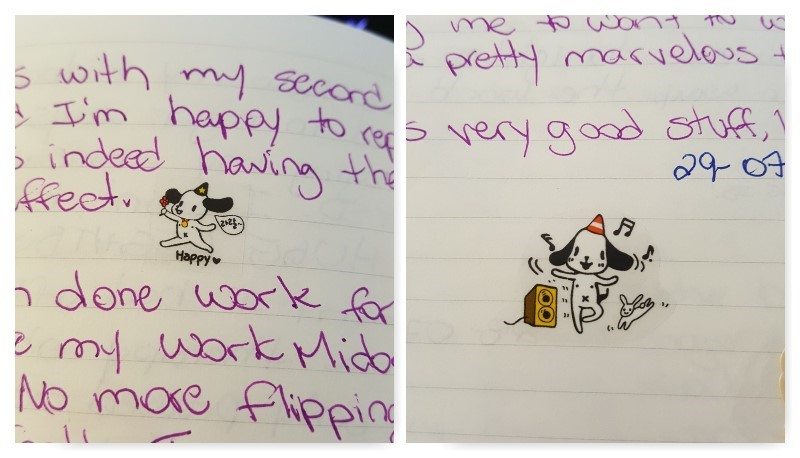 s with my second
I'm happy to rep
indeed having the
ffect.
Happy
n done work for
my work Mido
No more flipping
me to want to w
a pretty marvelous
s very good stuff, I
29-07